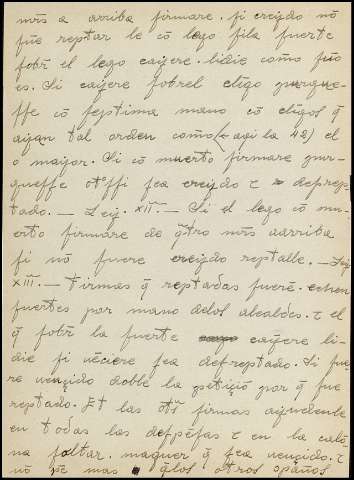 mrs a arriba firmare. si creydo nō
fue reptar le cō lego fila fuerte
sobrl el lego cayere. lidie como suo
es. Si cayere sobrel cligo purgue-
sse cō septima mano cō cligos q̄
ayan tal orden como (= aqi la 42) el
o mayor. Si cō muerto firmare pur-
guesse otossi sea creydo τ desrep-
tado. — Ley. XII. — Si el lego cō mu-
erto firmare de q̄tro mrs aarriba
si nō fuere creydo reptalle. — Ley
XIII. — Firmas q̄ reptadas fuerē. echen
suertes por mano delos alcaldes. τ el
q̄ sobrl la suerte cayere li-
die si vēciere sea desreptado. Si fue
re vençido doble la petiçiō por q̄ fue
reptado. Et las otrs firmas ayudenle
en todas las despēsas τ en la calō-
na peltar. maguer q̄ sea vençido. τ
nō pe mas qlos otros spaños